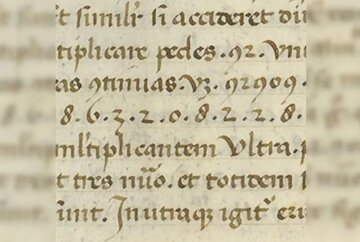 t simili si accideret di
tiplicare pedes .92. Vni
as 9tinuas. Vz. 92909.
8.6.3.2.0.8.2.2.8.
ml'tiplicantem Vltra.
t tres nūo. et totidem
unt. In utraq igit' eri